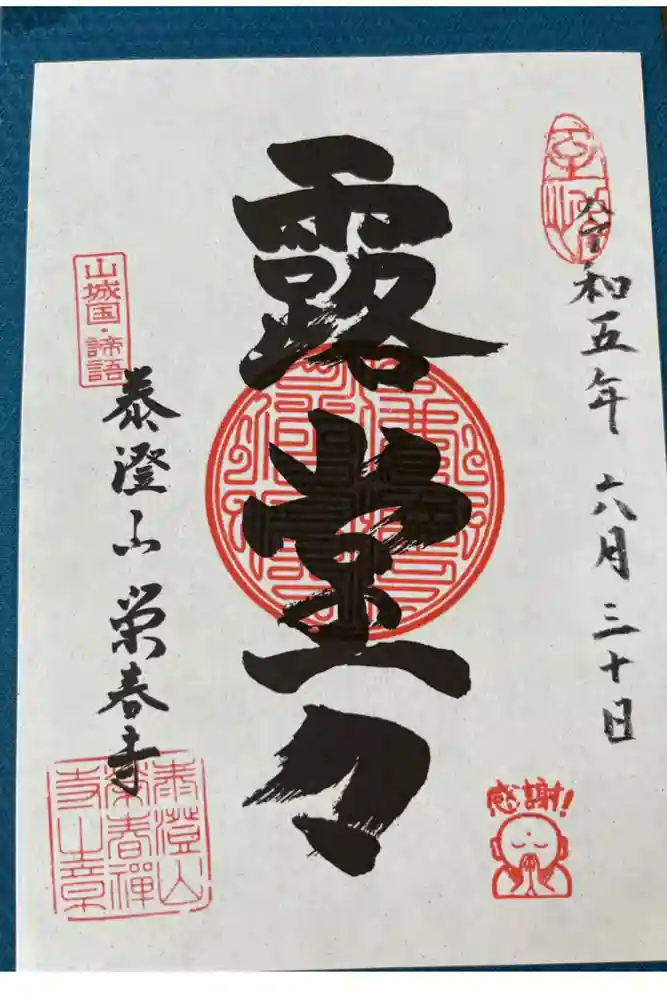 令和五年 六月三十日
露堂々
山城国・諦語
泰澄山 栄春寺
泰澄山
栄春禅
寺山章
感謝!